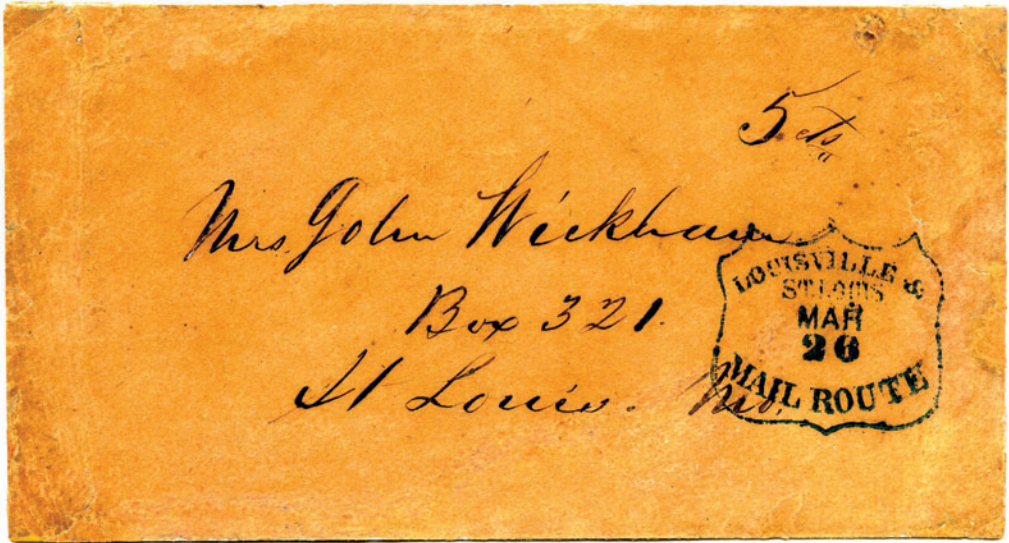 5 cts
Mrs. John Wickham
Box 321.
St Louis. Mo.
LOUISVILLE &
ST. LOUIS
MAR
26
MAIL ROUTE